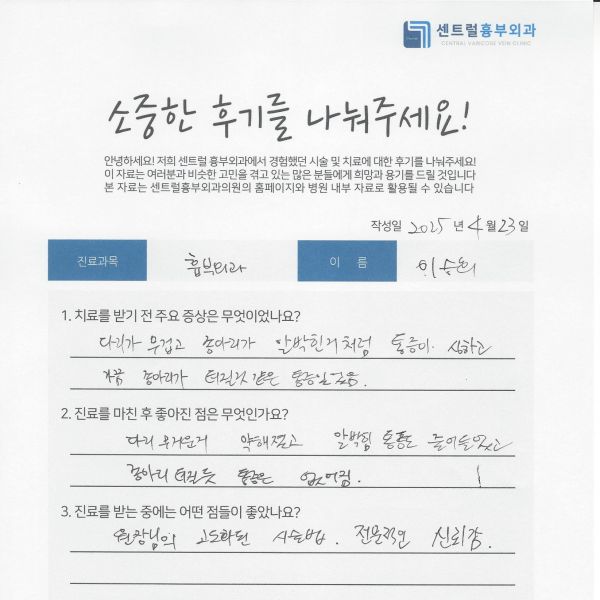 센트럴흉부외과
CENTRAL VARICOSE VEIN CLINIC
소중한 후기를 나눠주세요!
안녕하세요! 저희 센트럴 흉부외과에서 경험했던 시술 및 치료에 대한 후기를 나눠주세요!
이 자료는 여러분과 비슷한 고민을 겪고 있는 많은 분들에게 희망과 용기를 드릴 것입니다
본 자료는 센트럴흉부외과의원의 홈페이지와 병원 내부 자료로 활용될 수 있습니다
작성일 2025 년 4 월 23 일
진료과목 흉부외과 이 름
1. 치료를 받기 전 주요 증상은 무엇이었나요?
다리가 무겁고 종아리가 알박힌거처럼 통증이 심하고
가끔 종아리가 터질것 같은 통증있었음.
2. 진료를 마친 후 좋아진 점은 무엇인가요?
다리 무거운거 약해졌고 알박힘 통증도 줄어들었고
종아리 터질듯 통증은 없어짐.
3. 진료를 받는 중에는 어떤 점들이 좋았나요?
원장님의 고도화된 시술법. 전문적인 신뢰감.